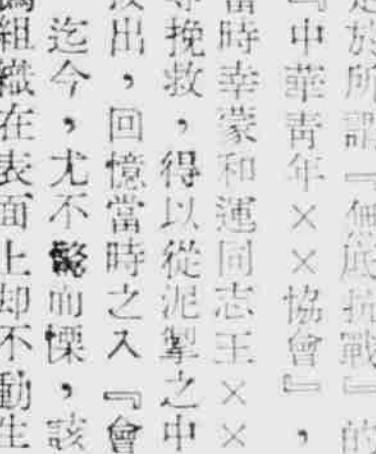 於所謂『無底抗戰』的
『中華青年××協會』，
時幸蒙和運同志王××
挽救，得以從泥掣之中
出，回憶當時之入『會
迄今，尤不而慄，該
組織在表面上却不動生